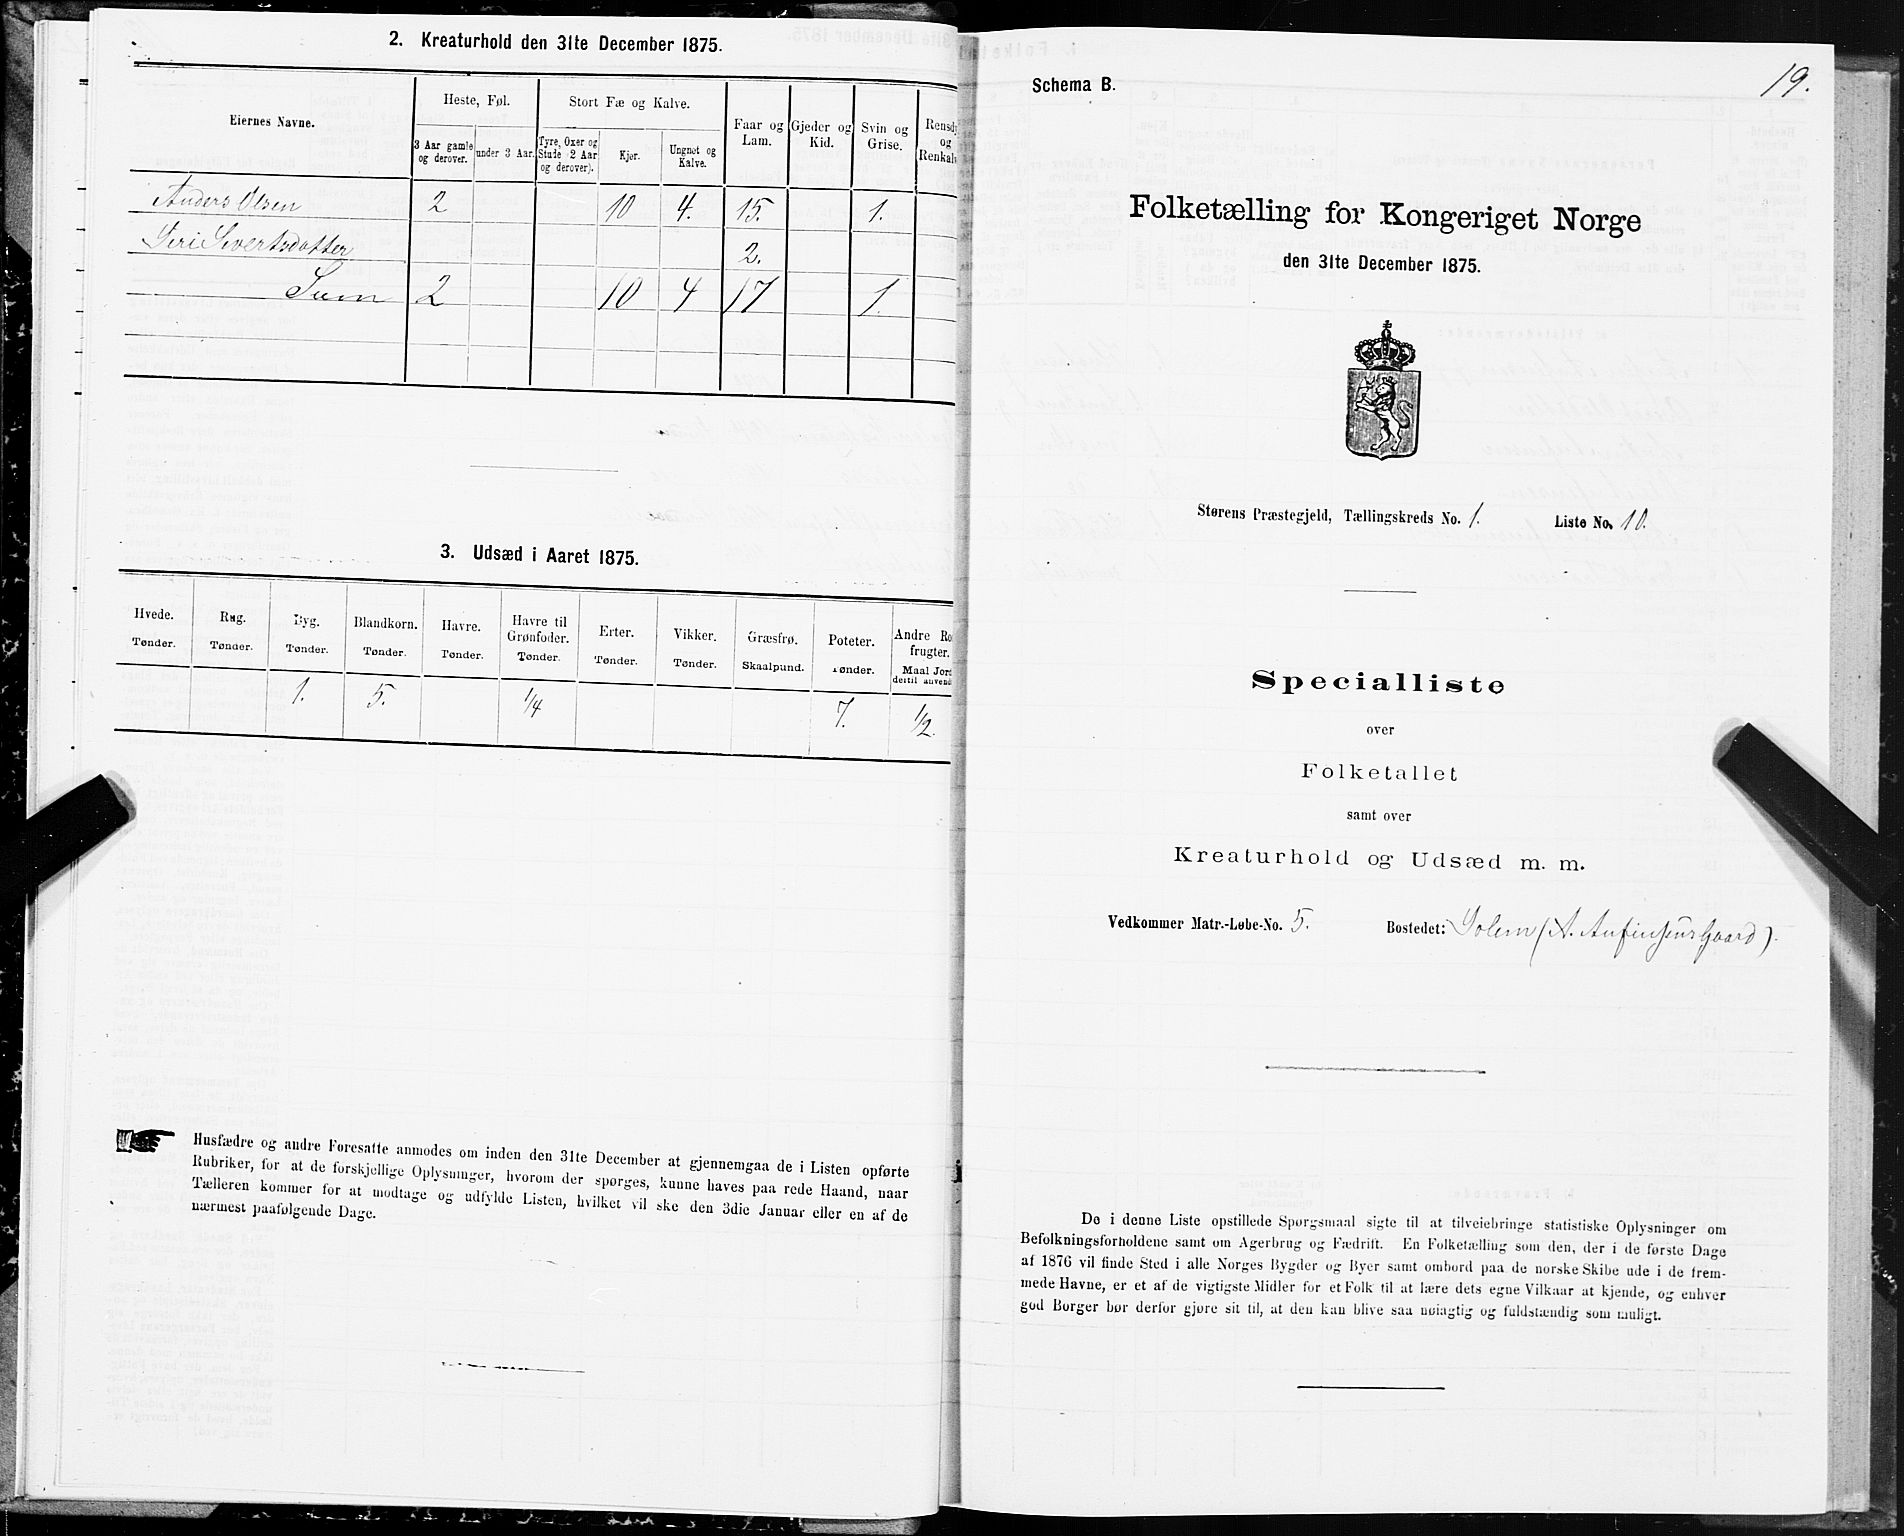 2. Kreaturhold den 31te December 1875.
Eiernes Navne.
Heste, Føl.
Stort Fæ og Kalve.
Faar og Lam.
Gjeder og Kid.
Svin og Grise.
Rensd og Renkal
3 Aar gamle og derover.
under 3 Aar.
Tyre, Oxer og Stude (2 Aar og derover).
Kjør.
Ungnøt og Kalve.
Anders Olsen 2 10 4. 15. 1.
Siri Sivertsdatter 2.
Sum 2 10 4 17 1.
3. Udsæd i Aaret 1875.
Hvede. Rug. Byg. Blandkorn. Havre. Havre til Grønfoder. Erter. Vikker. Græsfrø. Poteter. Andre Ro frugter.
Tønder. Tønder. Tønder. Tønder. Tønder. Tønder. Tønder. Tønder. Skaalpund. Tønder. Maal Jord dertil anvend
1. 5. 1/4 7. 1/2
Husfædre og andre Foresatte anmodes om inden den 31te December at gjennemgaa de i Listen opførte
Rubriker, for at de forskjellige Oplysninger, hvorom der spørges, kunne haves paa rede Haand, naar
Tælleren kommer for at modtage og udfylde Listen, hvilket vil ske den 3die Januar eller en af de
nærmest paafølgende Dage.
Schema B.
19.
Folketælling for Kongeriget Norge
den 31te December 1875.
Størens Præstegjeld, Tællingskreds No. 1. Liste No. 10.
Specialliste
over
Folketallet
samt over
Kreaturhold og Udsæd m. m.
Vedkommer Matr.-Løbe-No. 5. Bostedet: Solem (A. Anfinsens Gaard).
De i denne Liste opstillede Spørgsmaal sigte til at tilveiebringe statistiske Oplysninger om
Befolkningsforholdene samt om Agerbrug og Fædrift. En Folketælling som den, der i de første Dage
af 1876 vil finde Sted i alle Norges Bygder og Byer samt ombord paa de norske Skibe ude i de frem-
mede Havne, er et af de vigtigste Midler for et Folk til at lære dets egne Vilkaar at kjende, og enhver
god Borger bør derfor gjøre sit til, at den kan blive saa nøiagtig og fuldstændig som muligt.